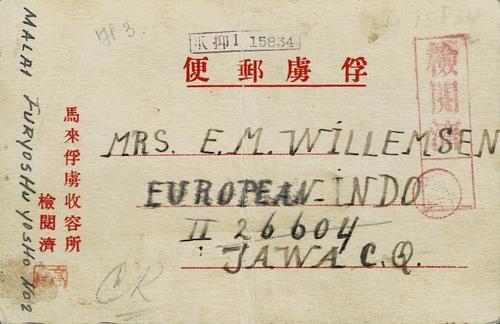 爪抑I 15834
俘虜郵便
檢閲濟
MRS. E.M. WILLEMSEN
EUROPEAN-INDO
II 26604
JAWA C.Q.
馬來俘虜收容所
檢閲濟
MALAI FURYOSHUYOSHO NO2
CR